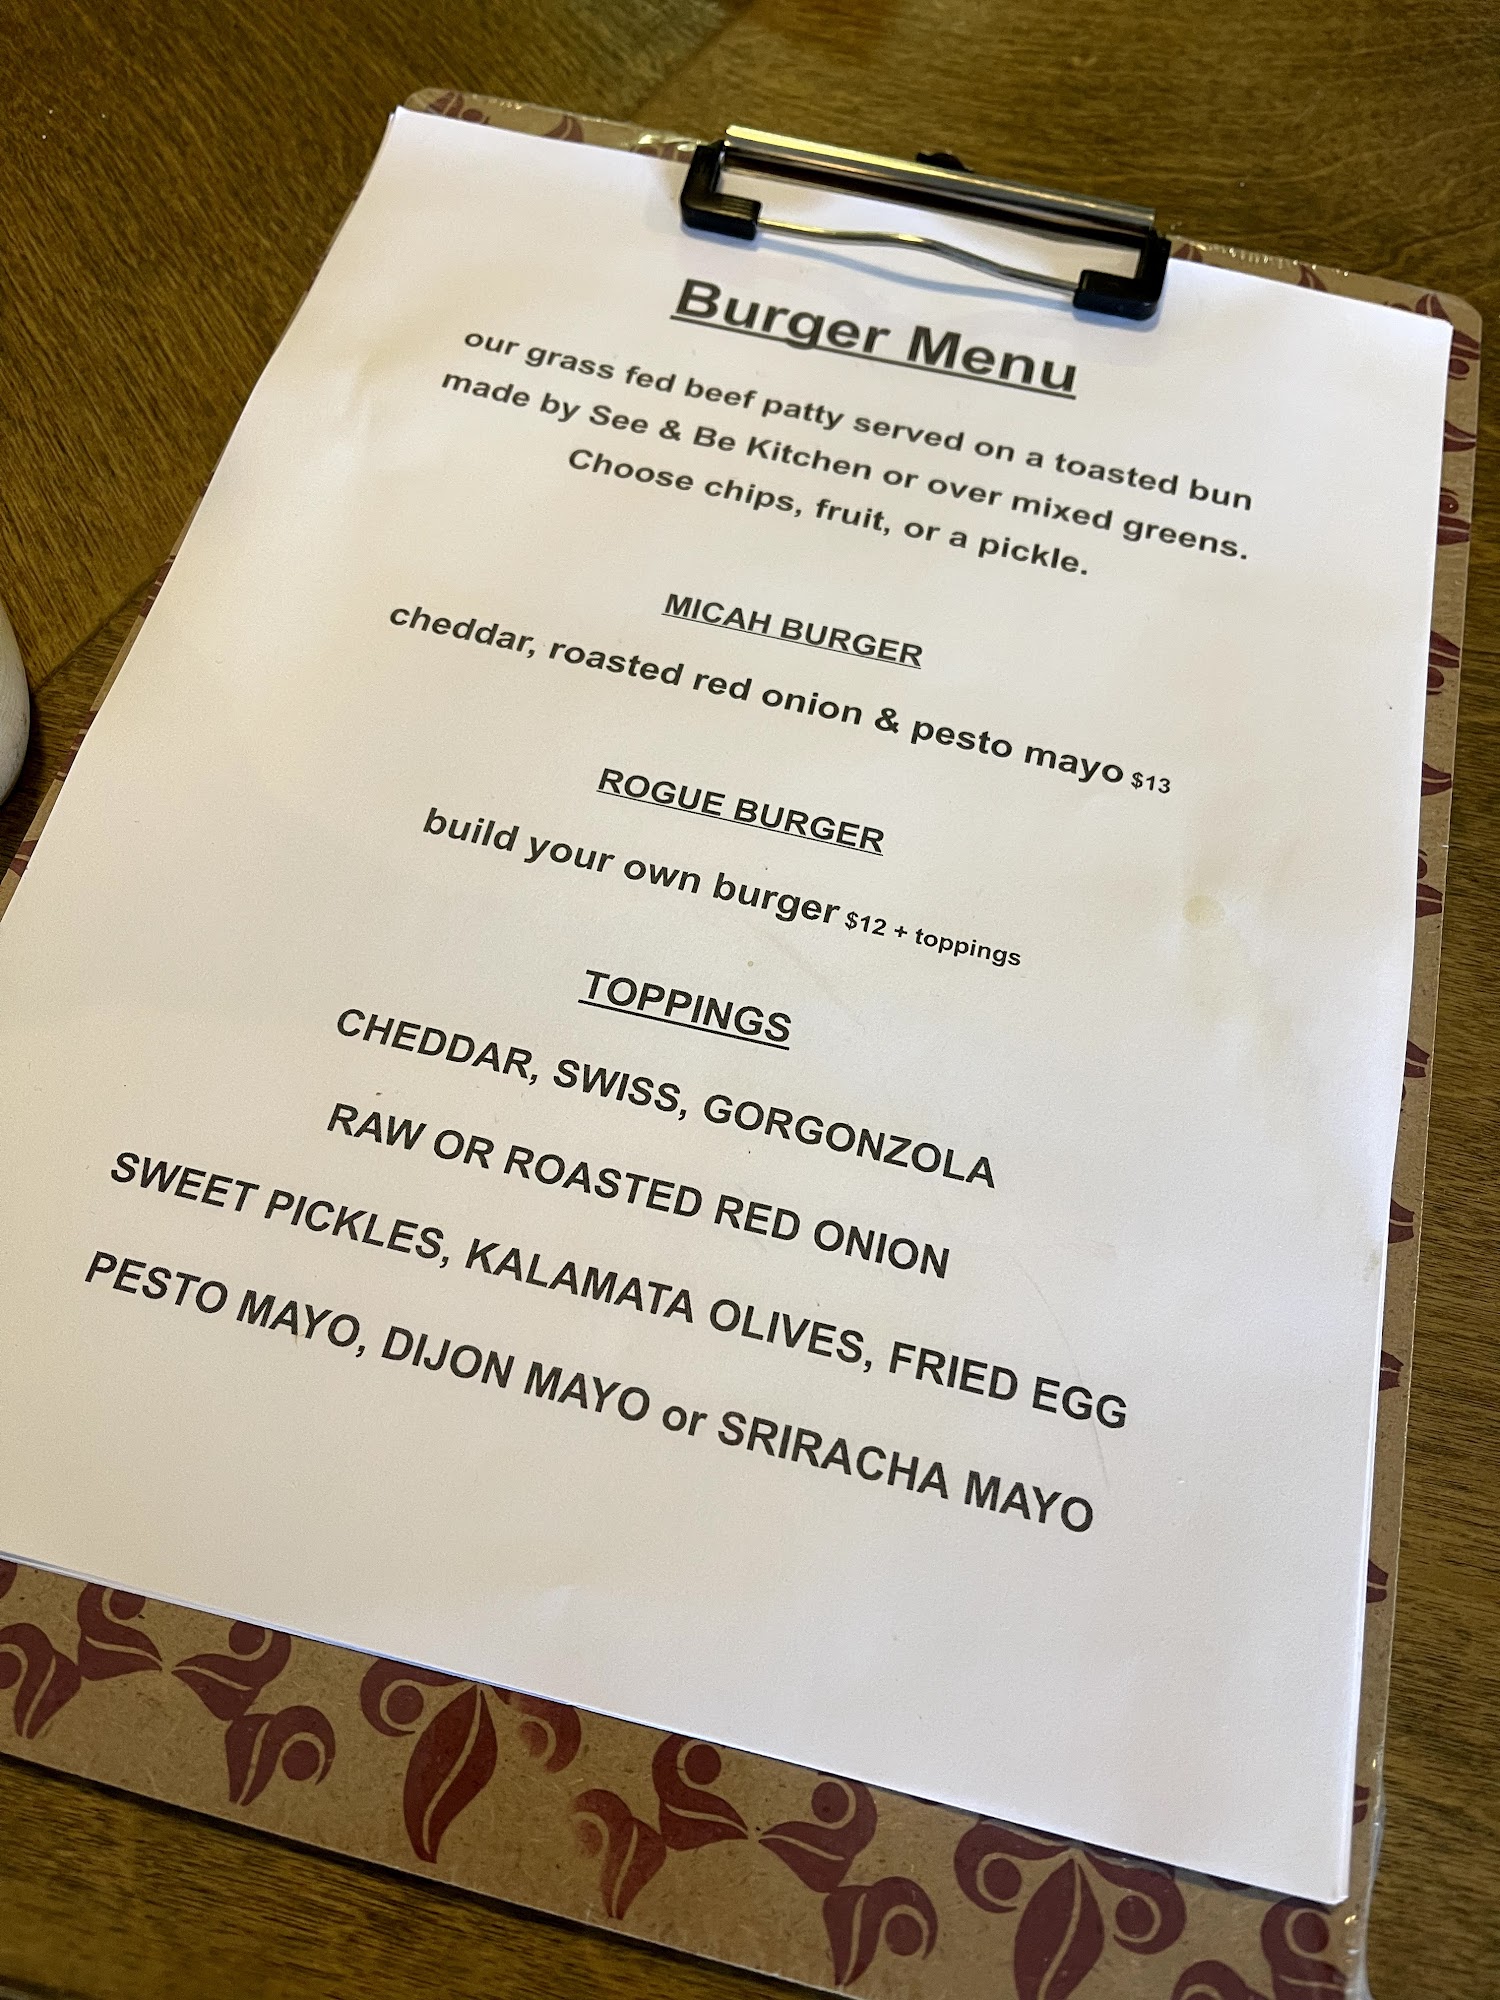 Burger Menu
our grass fed beef patty served on a toasted bun
made by See & Be Kitchen or over mixed greens.
Choose chips, fruit, or a pickle.
MICAH BURGER
cheddar, roasted red onion & pesto mayo $13
ROGUE BURGER
build your own burger $12 + toppings
TOPPINGS
CHEDDAR, SWISS, GORGONZOLA
RAW OR ROASTED RED ONION
SWEET PICKLES, KALAMATA OLIVES, FRIED EGG
PESTO MAYO, DIJON MAYO or SRIRACHA MAYO